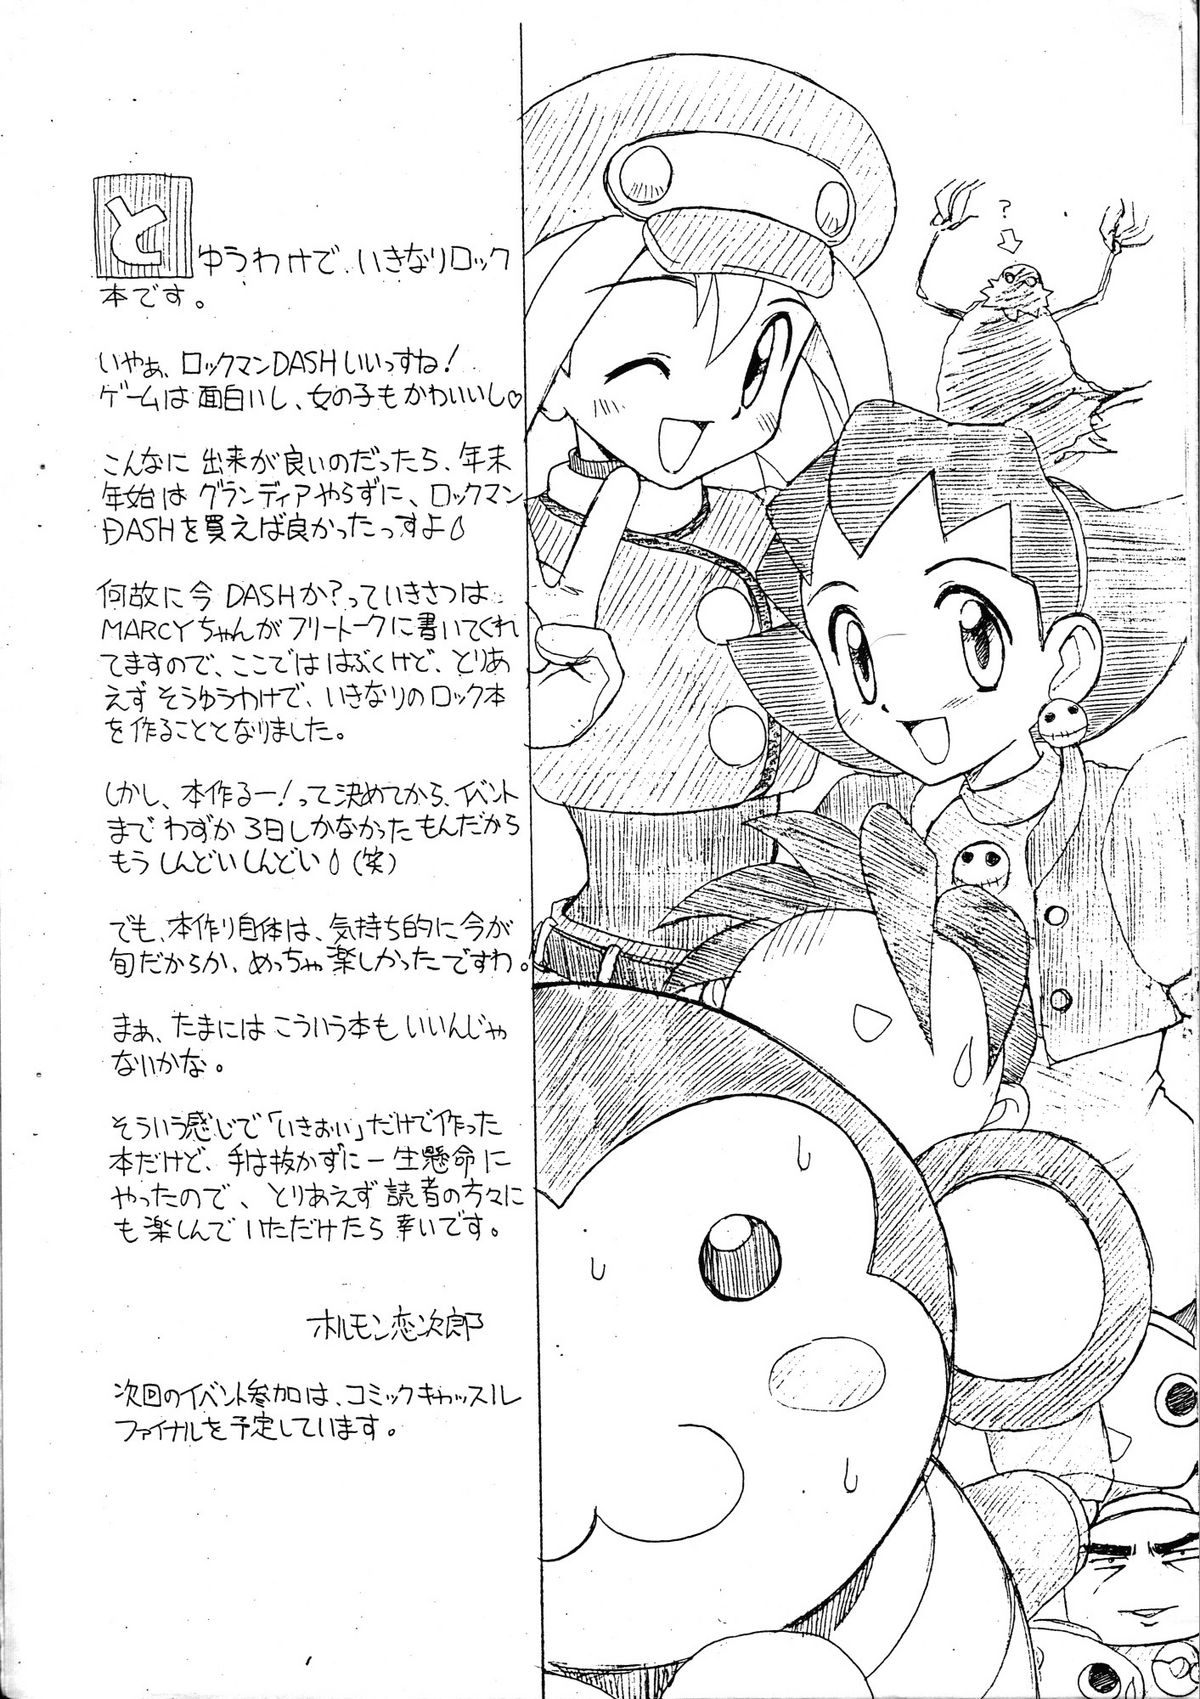 とゆうわけで、いきなりロック
本です。
いやぁ、ロックマンDASHいいっすね!
ゲームは面白いし、女の子もかわいいし♡
こんなに出来が良いのだったら、年末
年始はグランディアやらずに、ロックマン
DASHを買えば良かったっすよ
何故に今DASHか?っていきさつは、
MARCYちゃんがフリートークに書いてくれ
てますので、ここでははぶくけど、とりあ
えずそうゆうわけで、いきなりのロック本
を作ることとなりました。
しかし、本作るー!って決めてから、イベント
までわずか3日しかなかったもんだから
もうしんどいしんどい(笑)
でも、本作り自体は、気持ち的に今が
旬だからか、めっちゃ楽しかったですわ。
まぁ、たまにはこういう本もいいんじゃ
ないかな。
そういう感じで「いきおい」だけで作った
本だけど、手は抜かずに一生懸命に
やったので、とりあえず読者の方々に
も楽しんでいただけたら幸いです。
ホルモン恋次郎
次回のイベント参加は、コミックキャッスル
ファイナルを予定しています。
?